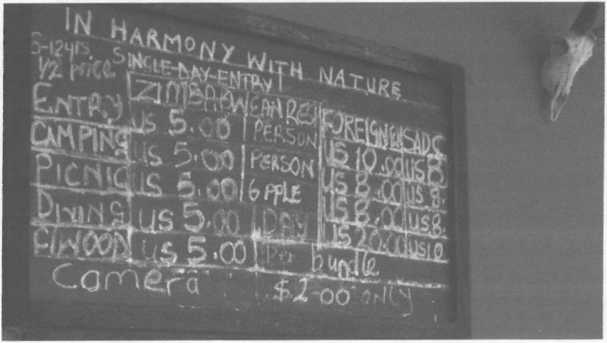 IN HARMONY WITH NATURE
5-12yrs SINGLE-DAY-ENTRY
1/2 price ZIMBABWEAN RES FOREIGNER SADC
ENTRY US 5.00 PERSON US 10.00 US 8
CAMPING US 5.00 PERSON US 8.00 US 8.
PICNIC US 5.00 6 PPLE US 8.00 US 8.
DIVING US 5.00 DAY US 20.00 US 10
F/WOOD US 5.00 Per bundle
Camera $2-00 only